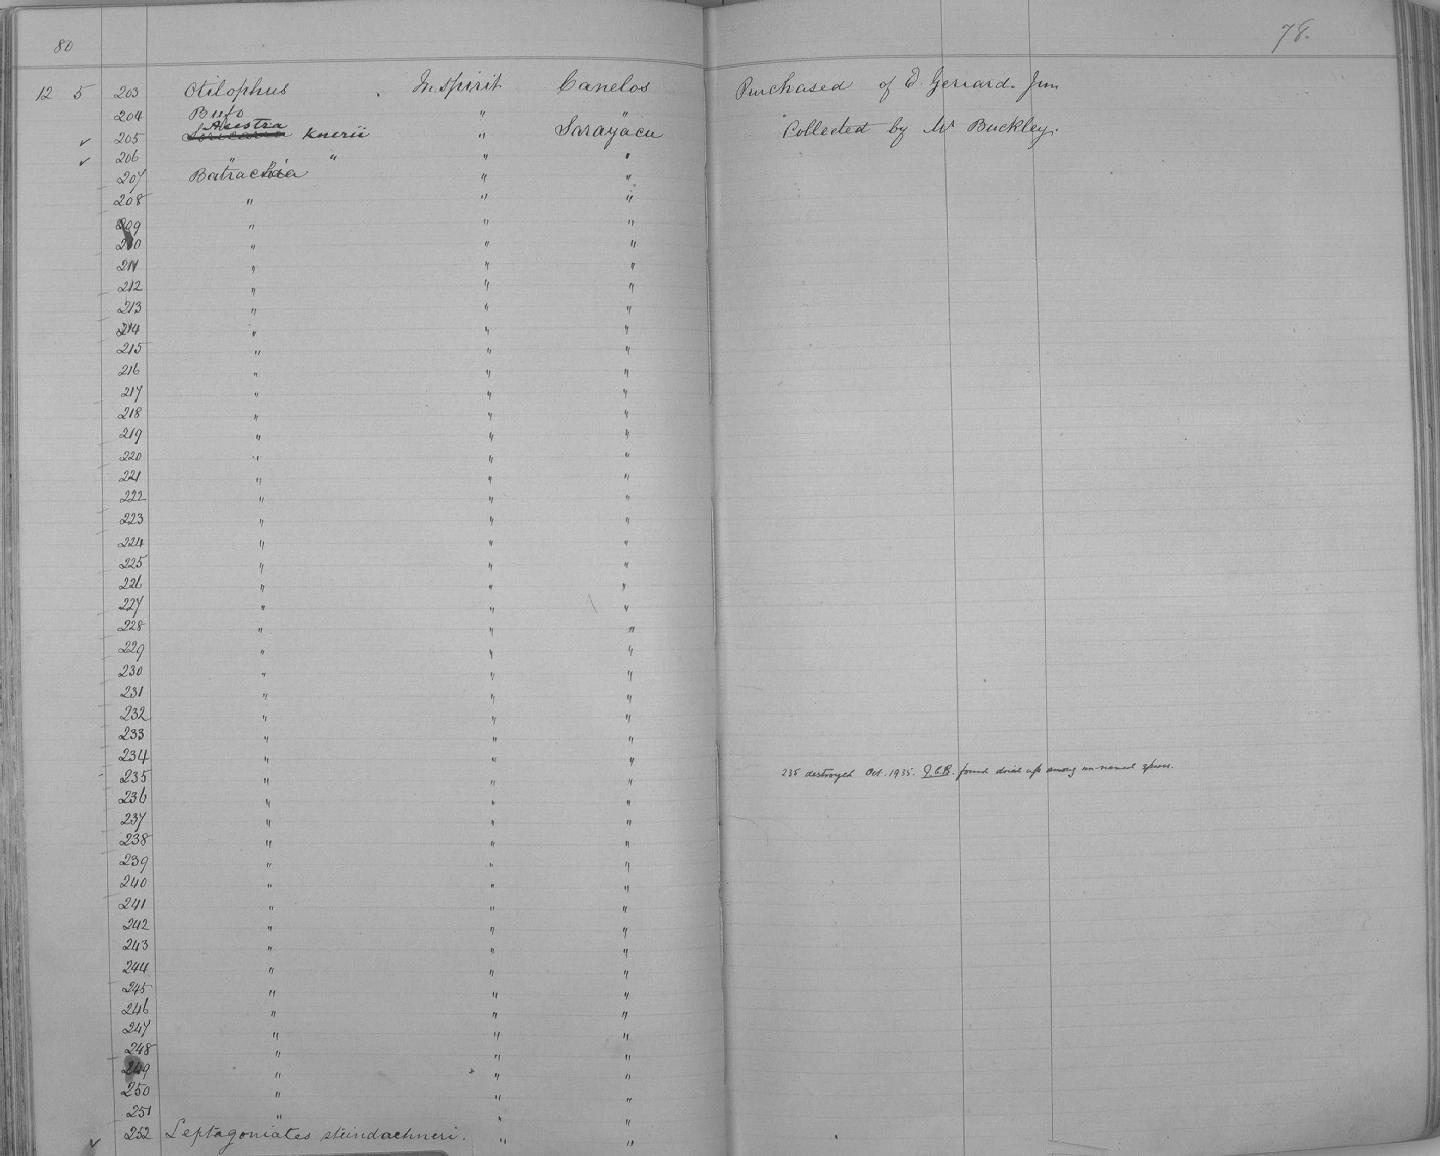 80 78.
12 5 203 Otilophus In spirit Canelos Purchased of E. Gerrard. Jun
204 Bufo "
Acestra
✓ 205 Loricaria knerii " Sarayacu Collected by Mr Buckley.
✓ 206 " " " "
207 Batrachia " "
208 " " "
209 " " "
210 " " "
211 " " "
212 " " "
213 " " "
214 " " "
215 " " "
216 " " "
217 " " "
218 " " "
219 " " "
220 " " "
221 " " "
222 " " "
223 " " "
224 " " "
225 " " "
226 " " "
227 " " "
228 " " "
229 " " "
230 " " "
231 " " "
232 " " "
233 " " "
234 " " "
235 " " " 235 destroyed Oct. 1935. found dried up among un-named specs.
236 " " "
237 " " "
238 " " "
239 " " "
240 " " "
241 " " "
242 " " "
243 " " "
244 " " "
245 " " "
246 " " "
247 " " "
248 " " "
249 " " "
250 " " "
251 " " "
✓ 252 Leptagoniates steindachneri. " "